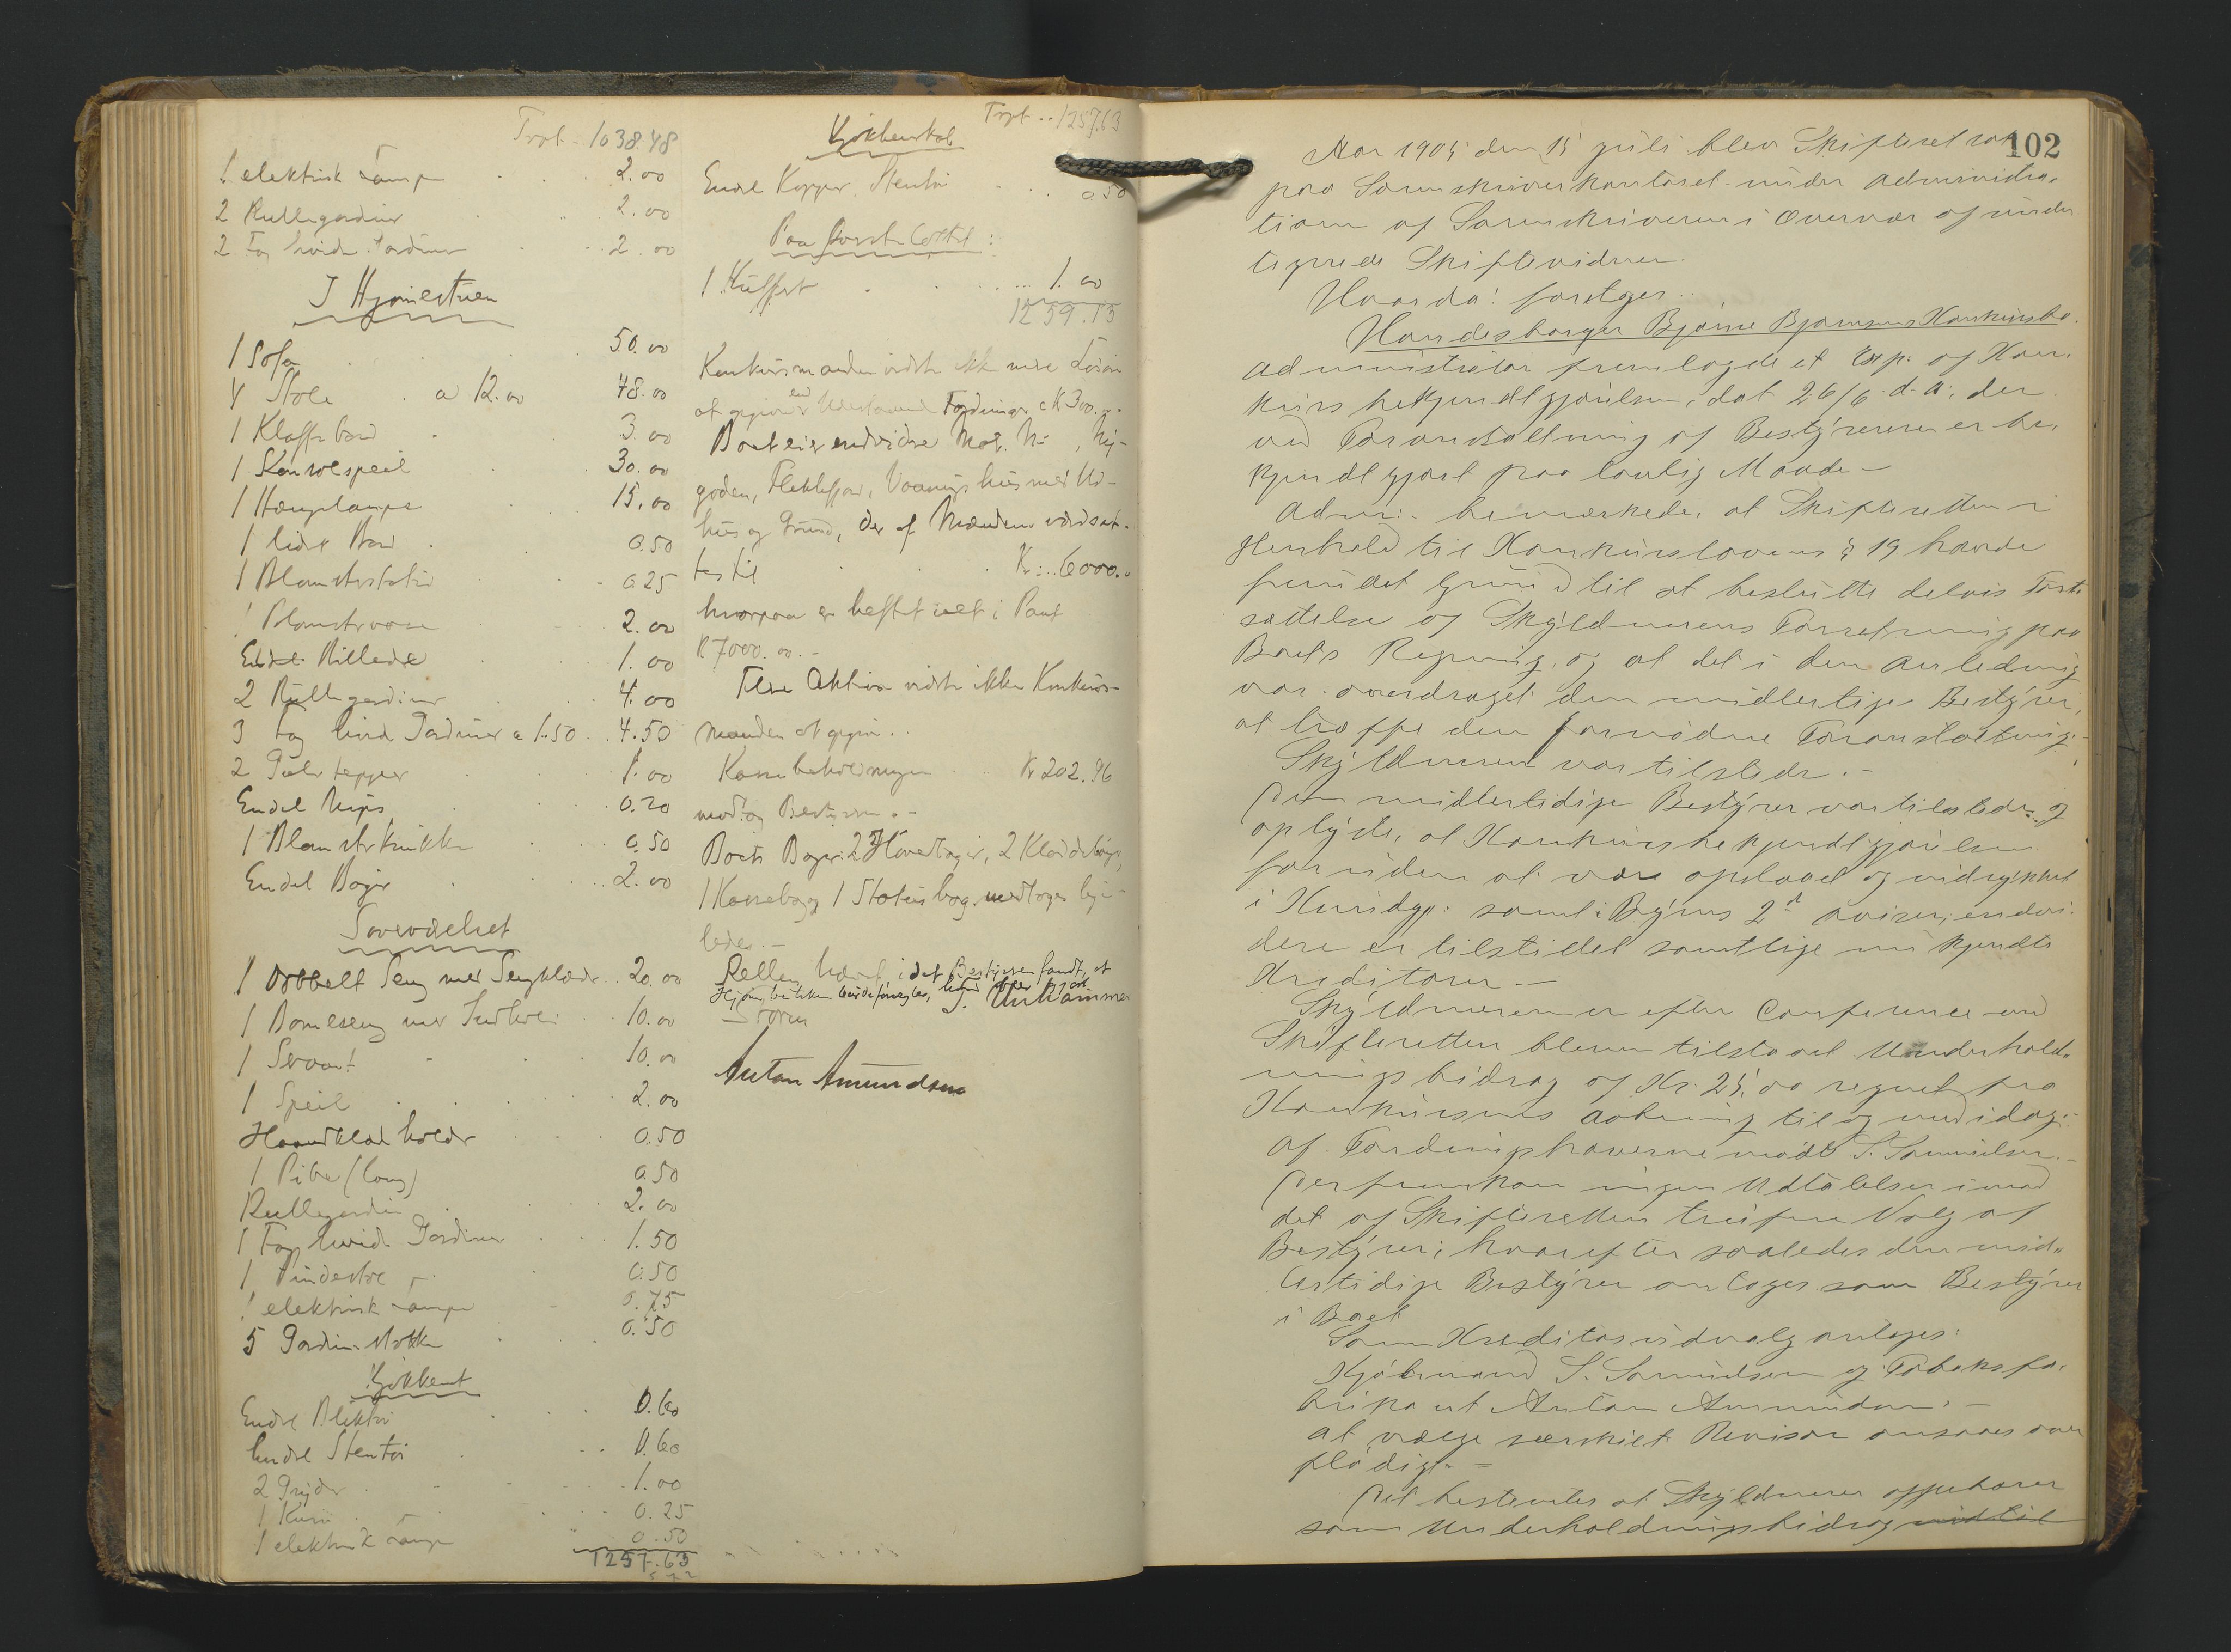 Trpt. 1038.48
1 elektrisk Lampe 2.00
2 Rullegardiner 2.00
2 Fag hvide Gardiner 2.00
I Hjørnestuen
1 Sofa 50.00
4 Stole a 12.00 48.00
1 Klaffebord 3.00
1 Konsolspeil 30.00
1 Hængelampe 15.00
1 lidet Bord 0.50
1 Blomsterstativ 0.25
1 Blomstervase 2.00
Endel Billeder 1.00
2 Rullegardiner 4.00
3 Fag hvide Gardiner a 1.50 4.50
2 Gulvtepper 1.00
Endel Nips 0.20
1 Blomsterkrukke 0.50
Endel Bøger 2.00
Soveværelset
1 dobbelt Seng med Sengklæder 20.00
1 Barneseng med Indhold 10.00
1 Servant 10.00
1 Speil 2.00
Haandklædeholder 0.50
1 Pibe (lang) 0.50
Rullegardin 2.00
1 Fag hvide Gardiner 1.50
1 Pindestol 0.50
1 elektrisk Lampe 0.75
5 Gardinstokke 0.50
Kjøkkenet
Endel Bliktøi 0.60
Endel Stentøi 0.60
2 Gryder 1.00
1 Kurv 0.25
1 elektrisk Lampe 0.50
1257.63
Trpt. 1257.63
Kjøkkenskab
Endel Kopper, Stentøi 0.50
Paa Loftet:
1 Kuffert 1.00
1259.13
Konkursmanden vidste ikke mere Løsøre
at opgive end Udestaaende Fordringer c Kr 300.
Boet eier endvidere Matr. No , Ny-
goden, Flekkefjord, Vaaningshus med Ud-
hus og Grund, der af Mændene værdsat-
tes til Kr: 6000.
hvorpaa er heftet ialt i Pant
Kr 7000.00.-
Flere Aktiva vidste ikke Konkurs-
manden at opgive.
Kassebeholdningen Kr 202.96
modtog Bestyreren.-
Boets Bøger: 2 Hovedbøger, 2 Kladdebøger,
1 Kassebog og 1 Statusbog modtoges lige-
ledes.-
Retten hævet, idet Bestyreren fandt, at
Anton Amundsen
102
Aar 1905 den 15 juli blev Skifteret sat
paa Sorenskriverkontoret under administra-
tion af Sorenskriveren i Overvær af under
tegnede Skiftevidner.
Hvorda: foretoges
Handelsborger Bjarne Bjørnsens Konkursbo.
Administrator fremlagde et Exp. af Kon-
kursbekjendtgjørelsen, dat 26/6 d.a., der
ved Foranstaltning af Bestyreren er be-
kjendtgjort paa lovlig Maade-
Adm. bemerkede, at Skifteretten i
Henhold til Konkurslovens § 19 havde
fundet Grund til at beslutte delvis Fort-
sættelse af Skyldnerens Forretning paa
Boets Regning, og at det i den Anledning
var overdraget den midlertidige Bestyrer,
at træffe den fornødne Foranstaltning.
Skyldneren var tilstede.-
Den midlertidige Bestyrer var tilstede og
oplyste, at Konkursbekjendtgjørelsen
foruden at være opslaaet og indrykket
i Kundgj: samt i Byens 2de aviser, endvi-
dere er tilstillet samtlige nu kjendte
Kreditorer.-
Skyldneren er efter Conference med
Skifteretten bleven tilstaaet Underhold-
ningsbidrag af Kr. 25.00 regnet fra
Konkursens Aabning til og med idag.-
Af Fordringshaverne mødte S. Samuelsen.-
Der fremkom ingen Udtalelser imod
det af Skifteretten trufne Valg af
Bestyrer; hvorefter saaledes den mid-
lertidige Bestyrer antages som Bestyrer
i Boet
Som Kreditorudvalg antages:
Kjøbmand S. Samuelsen og Tobaksfa-
brikant Anton Amundsen.-
At vælge særskilt Revisor ansaaes over
flødigt.-
Det bestemtes at Skyldneren oppebærer
som Underholdningsbidrag indtil